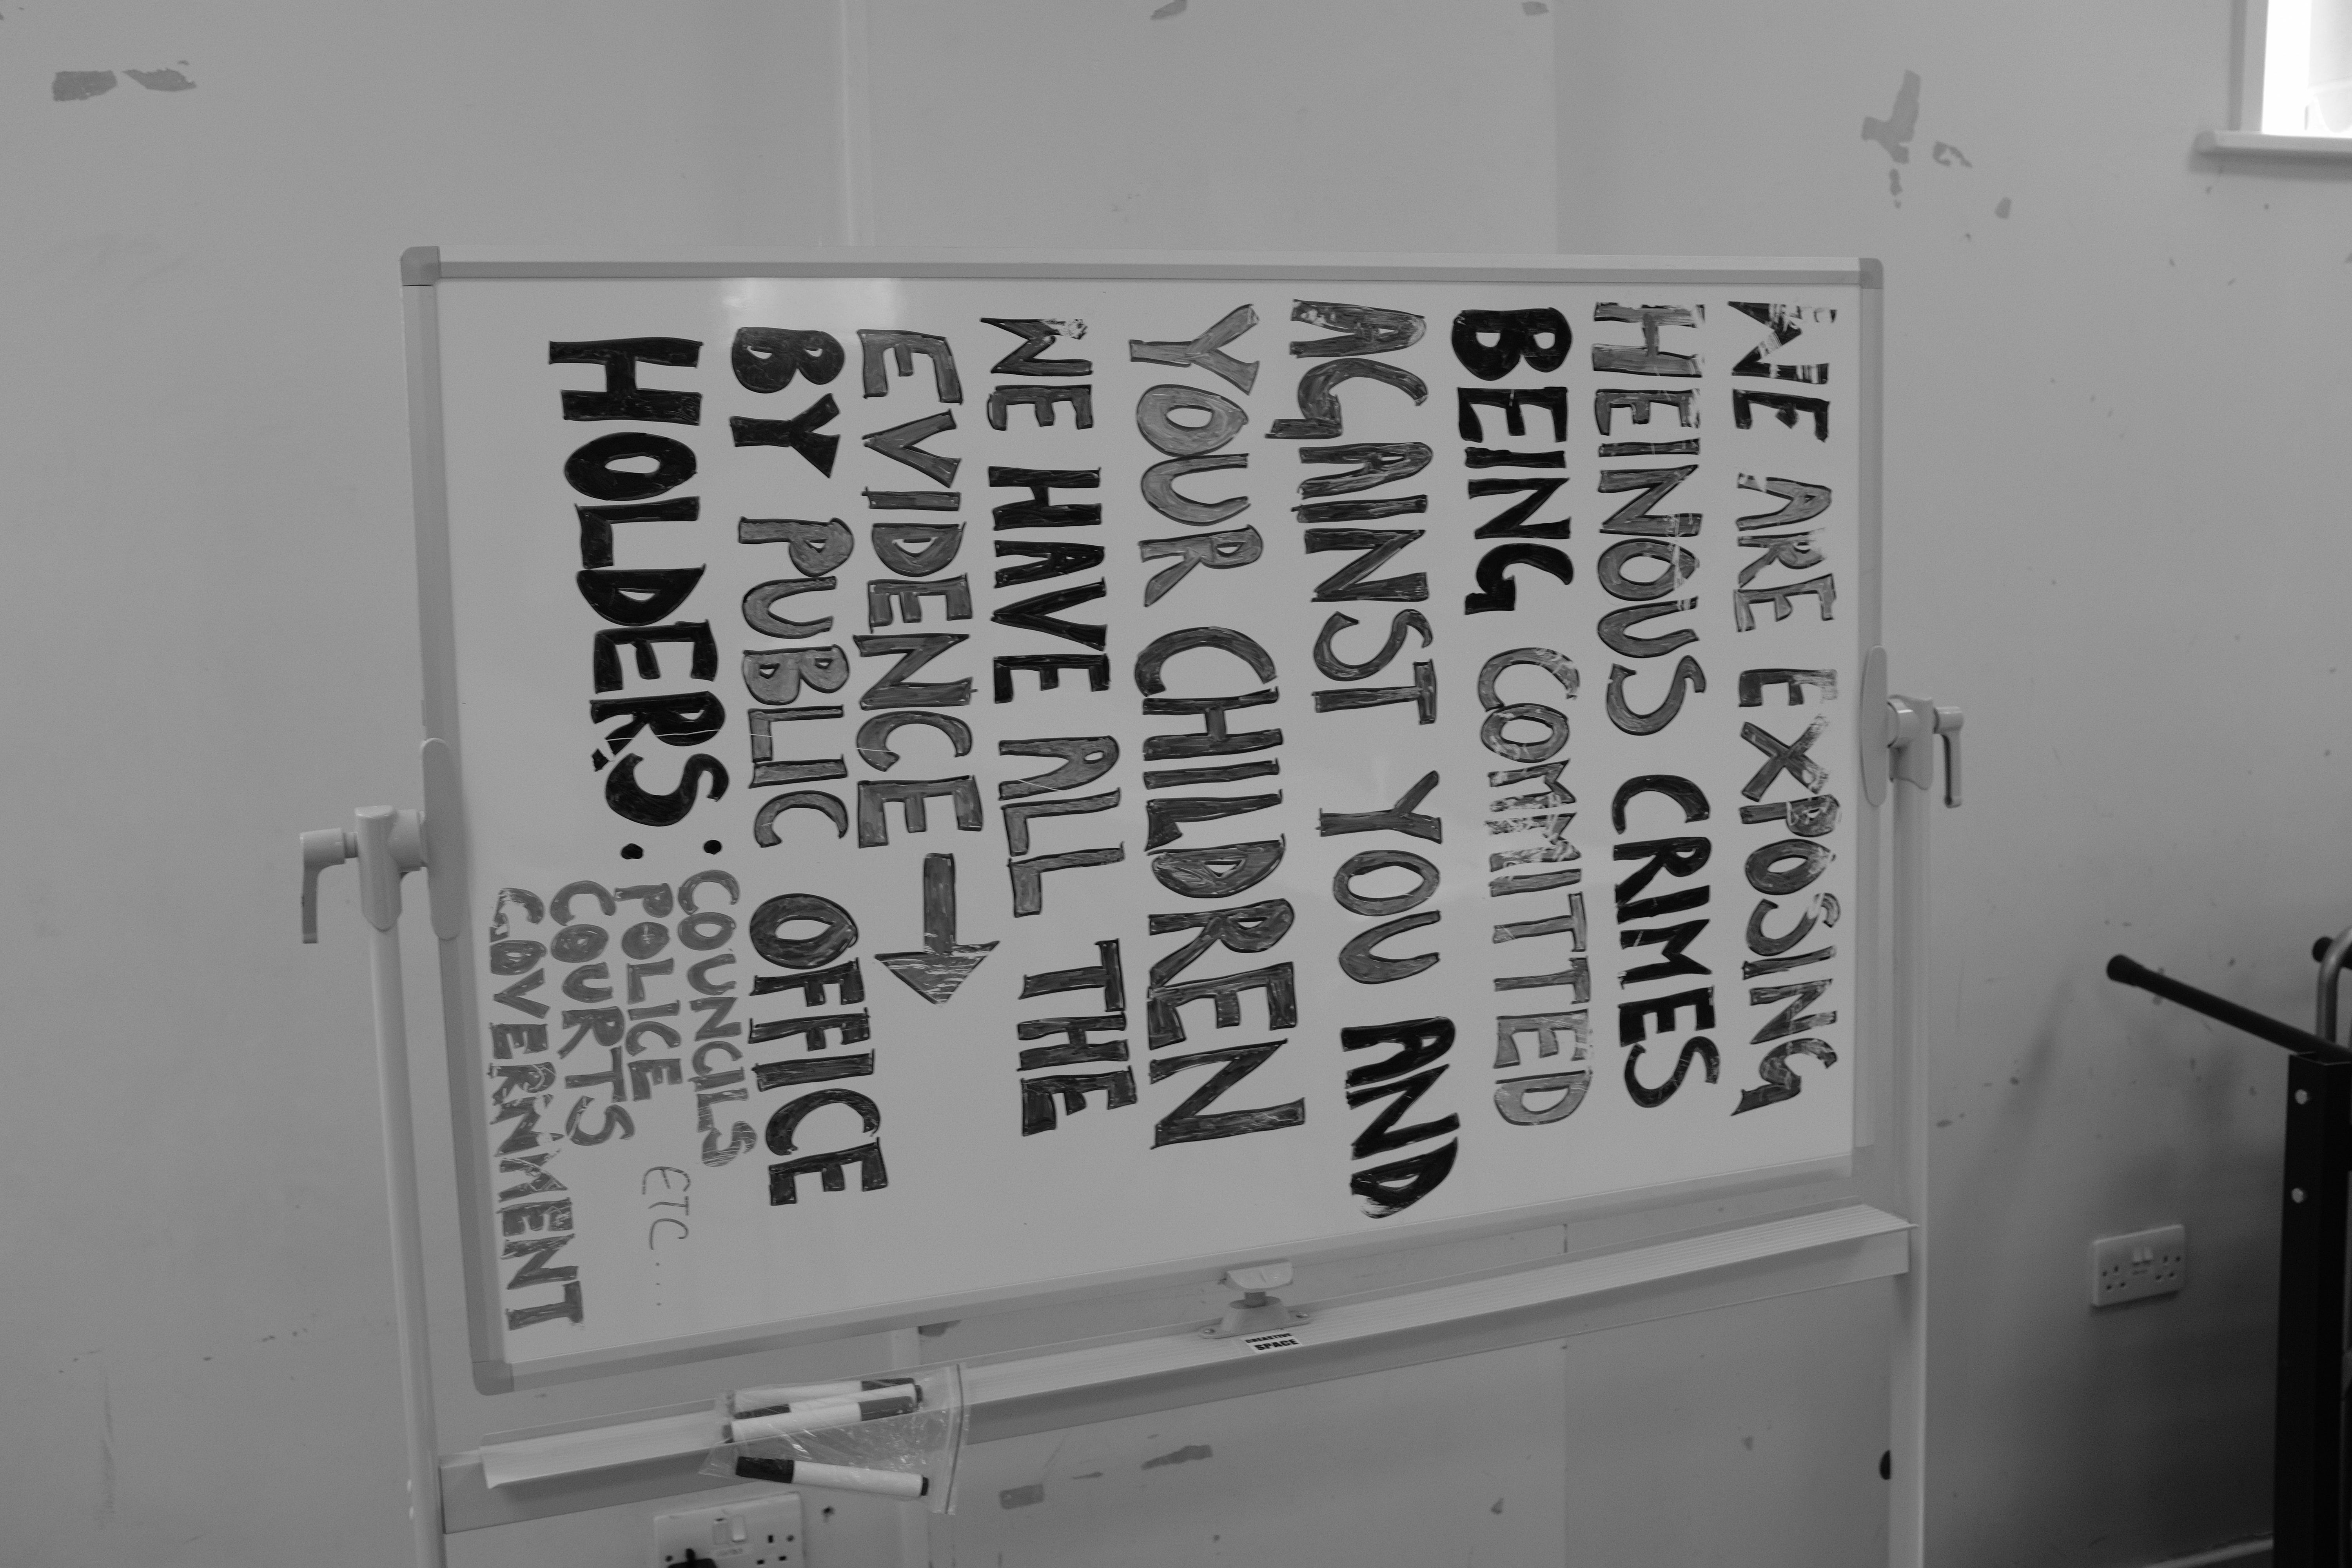 WE ARE EXPOSING
HEINOUS CRIMES
BEING COMMITTED
AGAINST YOU AND
YOUR CHILDREN
WE HAVE ALL THE
EVIDENCE →
BY PUBLIC OFFICE
HOLDERS:
COUNCILS
POLICE
COURTS
GOVERNMENT
ETC....
CREASTIVE
SPACE